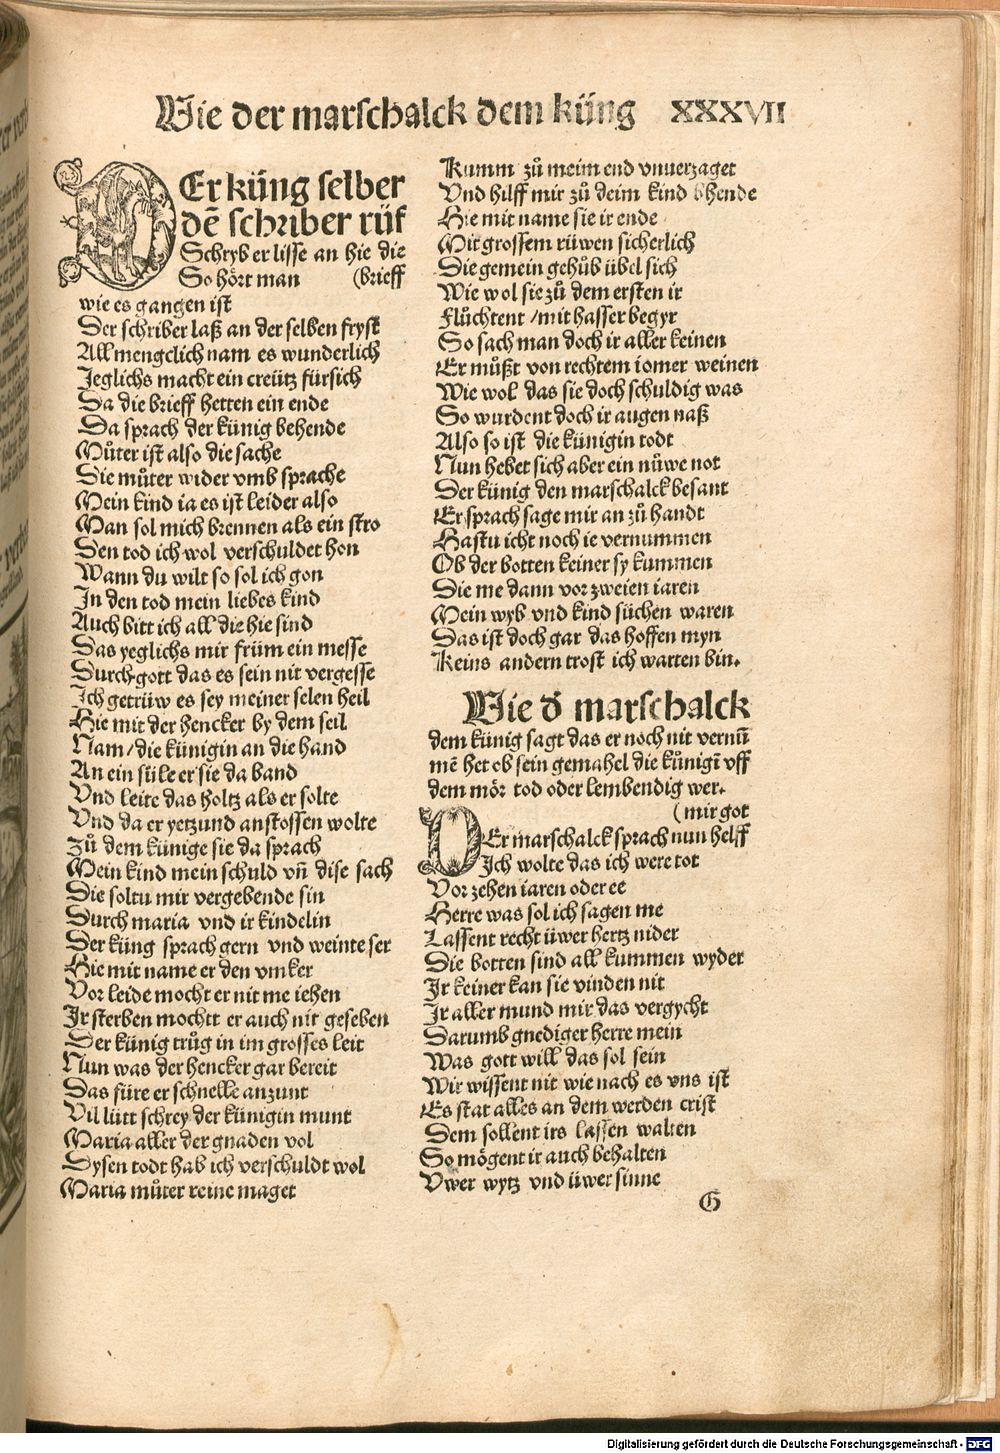 Wie der marschalck dem küng XXXVII
DEr küng selber
dē schriber rüf
Schryb er lisse an hie die
So hört man (brieff
wie es gangen ist
Der schriber laß an der selben fryst
All mengclich nam es wunderlich
Jeglichs macht ein creütz für sich
Da die brieff hetten ein ende
Da sprach der künig behende
Můter ist also die sache
Die můter wider vmb sprache
Mein kind ia es ist leider also
Man sol mich brennen als ein stro
Den tod ich wol verschuldet hon
Wann du wilt so sol ich gon
In den tod mein liebes kind
Auch bitt ich all die hie sind
Das yeglichs mir früm ein messe
Durch gott das es sein nit vergesse
Ich getrüw es sey meiner selen heil
Hie mit der hencker by dem seil
Nam/die künigin an die hand
An ein süle er sie da band
Vnd leite das holtz als er solte
Vnd da er yetzund anstossen wolte
Zů dem künige sie da sprach
Mein kind mein schuld vn̄ dise sach
Die soltu mir vergebende sin
Durch maria vnd ir kindelin
Der küng sprach gern vnd weinte ser
Hie mit name er den vmker
Vor leide mocht er nit me iehen
Ir sterben mochtt er auch nit gesehen
Der künig trůg in im grosses leit
Nun was der hencker gar bereit
Das füre er schnelle anzunt
Vil lütt schrey der künigin munt
Maria aller der gnaden vol
Dysen todt hab ich verschuldt wol
Maria můter reine maget
Kumm zů meim end vnuerzaget
Vnd hilff mir zů deim kind bhende
Hie mit name sie ir ende
Mit grossem rüwen sicherlich
Die gemein gehůb übel sich
Wie wol sie zů dem ersten ir
Flůchtent /mit hasser begyr
So sach man doch ir aller keinen
Er můßt von rechtem iomer weinen
Wie wol das sie doch schuldig was
So wurdent doch ir augen naß
Also so ist die künigin todt
Nun hebet sich aber ein nüwe not
Der künig den marschalck besant
Er sprach sage mir an zů handt
Hastu icht noch ie vernummen
Ob der botten keiner sy kummen
Die me dann vor zweien iaren
Mein wyb vnd kind süchen waren
Das ist doch gar das hoffen myn
Keins andern trost ich warten bin.
Wie d̄ marschalck
dem künig sagt das er noch nit vernū
mē het ob sein gemahel die künigī vff
dem mör tod oder lembendig wer.
(mir got
DEr marschalck sprach nun helff
Ich wolte das ich were tot
Vor zehen iaren oder ee
Herre was sol ich sagen me
Lassent recht üwer hertz nider
Die botten sind all kummen wyder
Ir keiner kan sie vinden nit
Ir aller mund mir das vergycht
Darumb gnediger herre mein
Was gott will das sol sein
Wir wissent nit wie nach es vns ist
Es stat alles an dem werden crist
Dem sollent irs lassen walten
So mögent ir auch behalten
Vwer wytz vnd üwer sinne
G
Digitalisierung gefördert durch die Deutsche Forschungsgemeinschaft - DFG